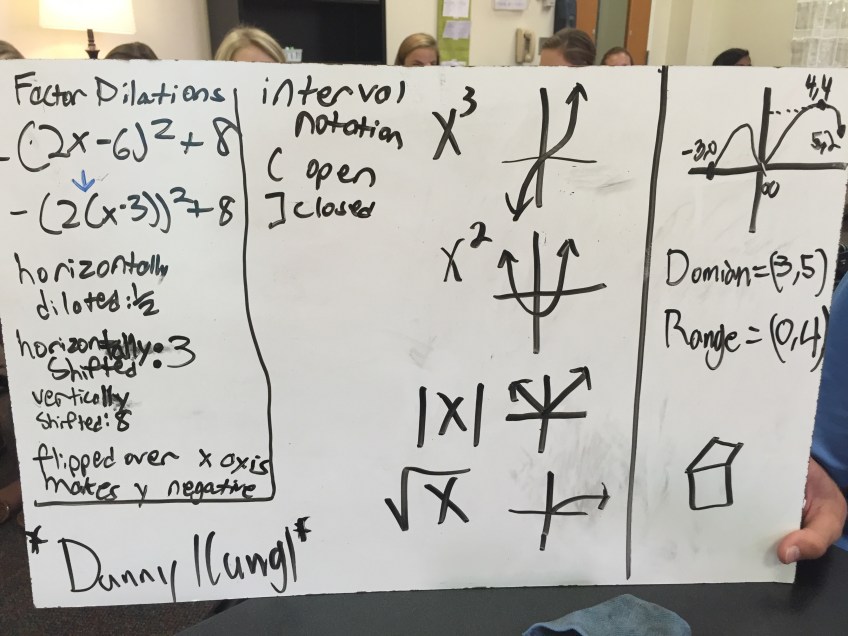 Factor Dilations
-(2x-6)²+8
-(2(x-3))²+8
horizontally
dilated: 1/2
horizontally: 3
shifted
vertically
shifted: 8
flipped over x axis
makes y negative
interval
notation
( open
] closed
x³
x²
|x|
√x
4,4
-3,0
5,2
Domian=(3,5)
Range=(0,4)